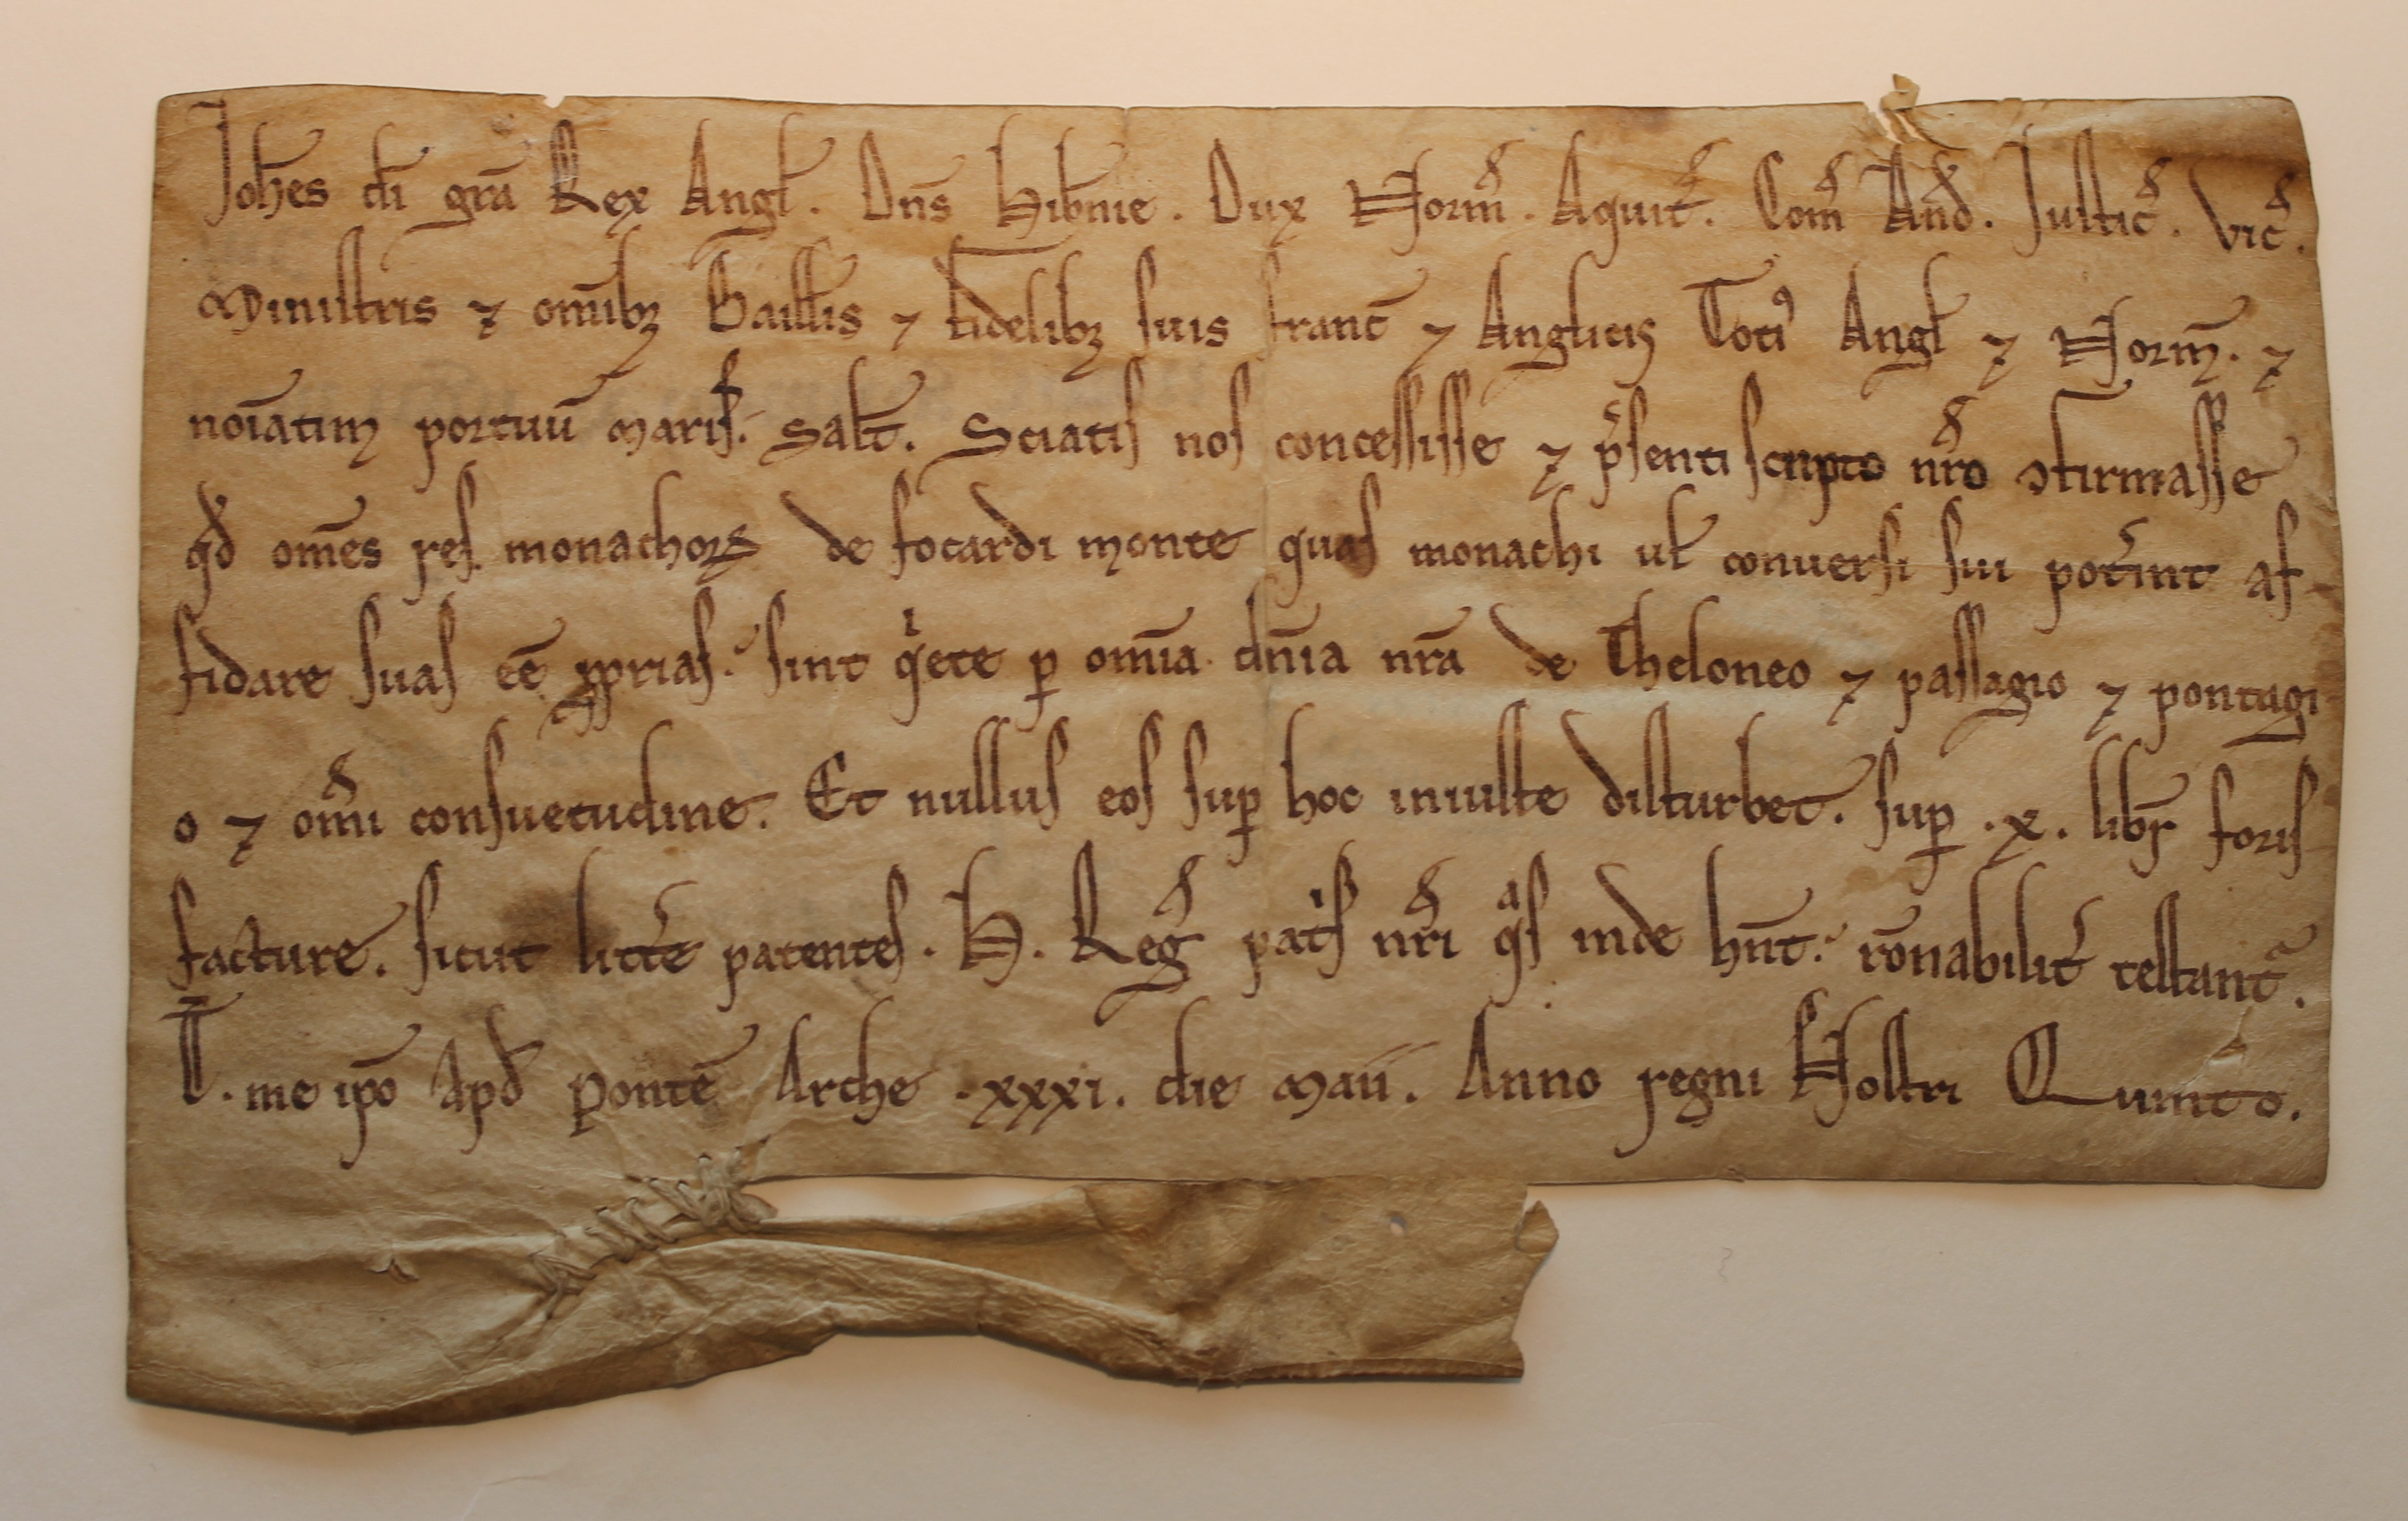 Joh̄es di̅ gr̄a Rex Angl̄. Dn̄s Hib̄nie. Dux Norm̄. Aquit̄. Com̄ And̄. Justic̄. Vic̄.
Ministris ⁊ om̄ibꝫ Baill̄is ⁊ fidelibꝫ suis franc̄ ⁊ Anglicis Totiꝰ Angl̄ ⁊ Norm̄. ⁊
noi̅atim portuū maris̄. Sal̄t. Sciatis nos concessisse ⁊ p̄senti scripto nr̄o ꝯfirmasse
qd̄ om̄es res monachoꝝ de focardi monte quas monachi ul̄ conuersi sui pot̄int af-
fidare suas ee̅ ꝓprias. sint qͥete ꝑ om̄ia dn̄ia nr̄a de Theloneo ⁊ passagio ⁊ pontagi-
o ⁊ om̄i consuetudine. Et nullus eos suꝑ hoc iniuste disturbet. suꝑ .x. libr̄ foris-
facture. sicut litt̄e patentes. H. Reḡ patͥs nr̄i qͣs inde hn̄t. ro̅nabilit̄ testant̄.
T. me ip̄o Apd̄ Pontē Arche .xxxi. die Maii. Anno regni Nostri Quinto.